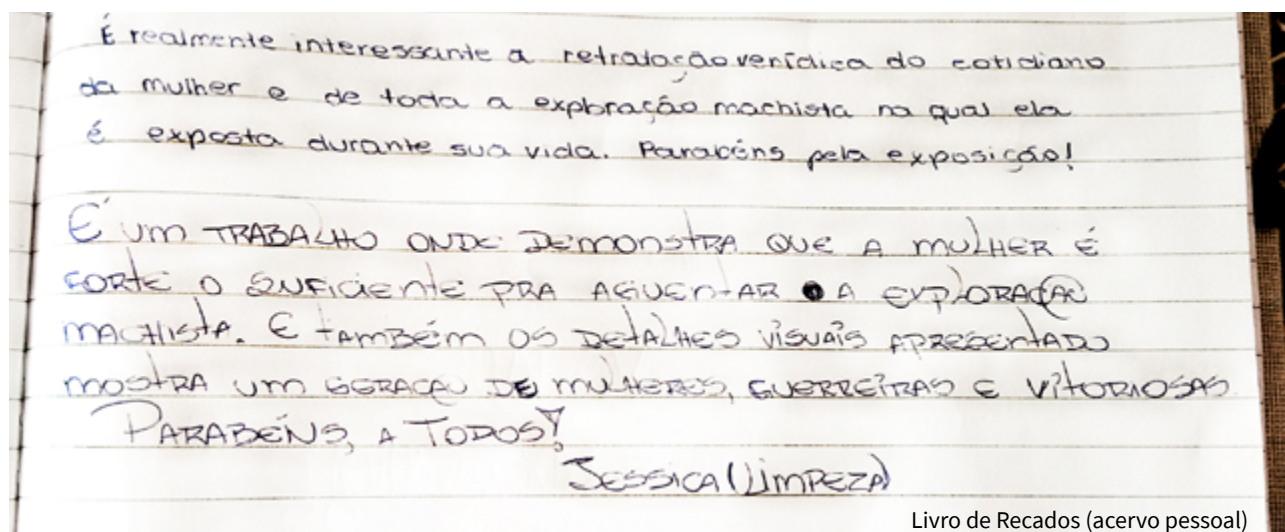 É realmente interessante a retratação verídica do cotidiano
da mulher e de toda a exploração machista na qual ela
é exposta durante sua vida. Parabéns pela exposição!
É UM TRABALHO ONDE DEMONSTRA QUE A MULHER É
FORTE O SUFICIENTE PRA AGUENTAR A EXPLORAÇÃO
MACHISTA. E TAMBÉM OS DETALHES VISUAIS APRESENTADO
MOSTRA UM GERAÇÃO DE MULHERES, GUERREIRAS E VITORIOSAS
PARABÉNS, A TODOS!
JESSICA (LIMPEZA)
Livro de Recados (acervo pessoal)